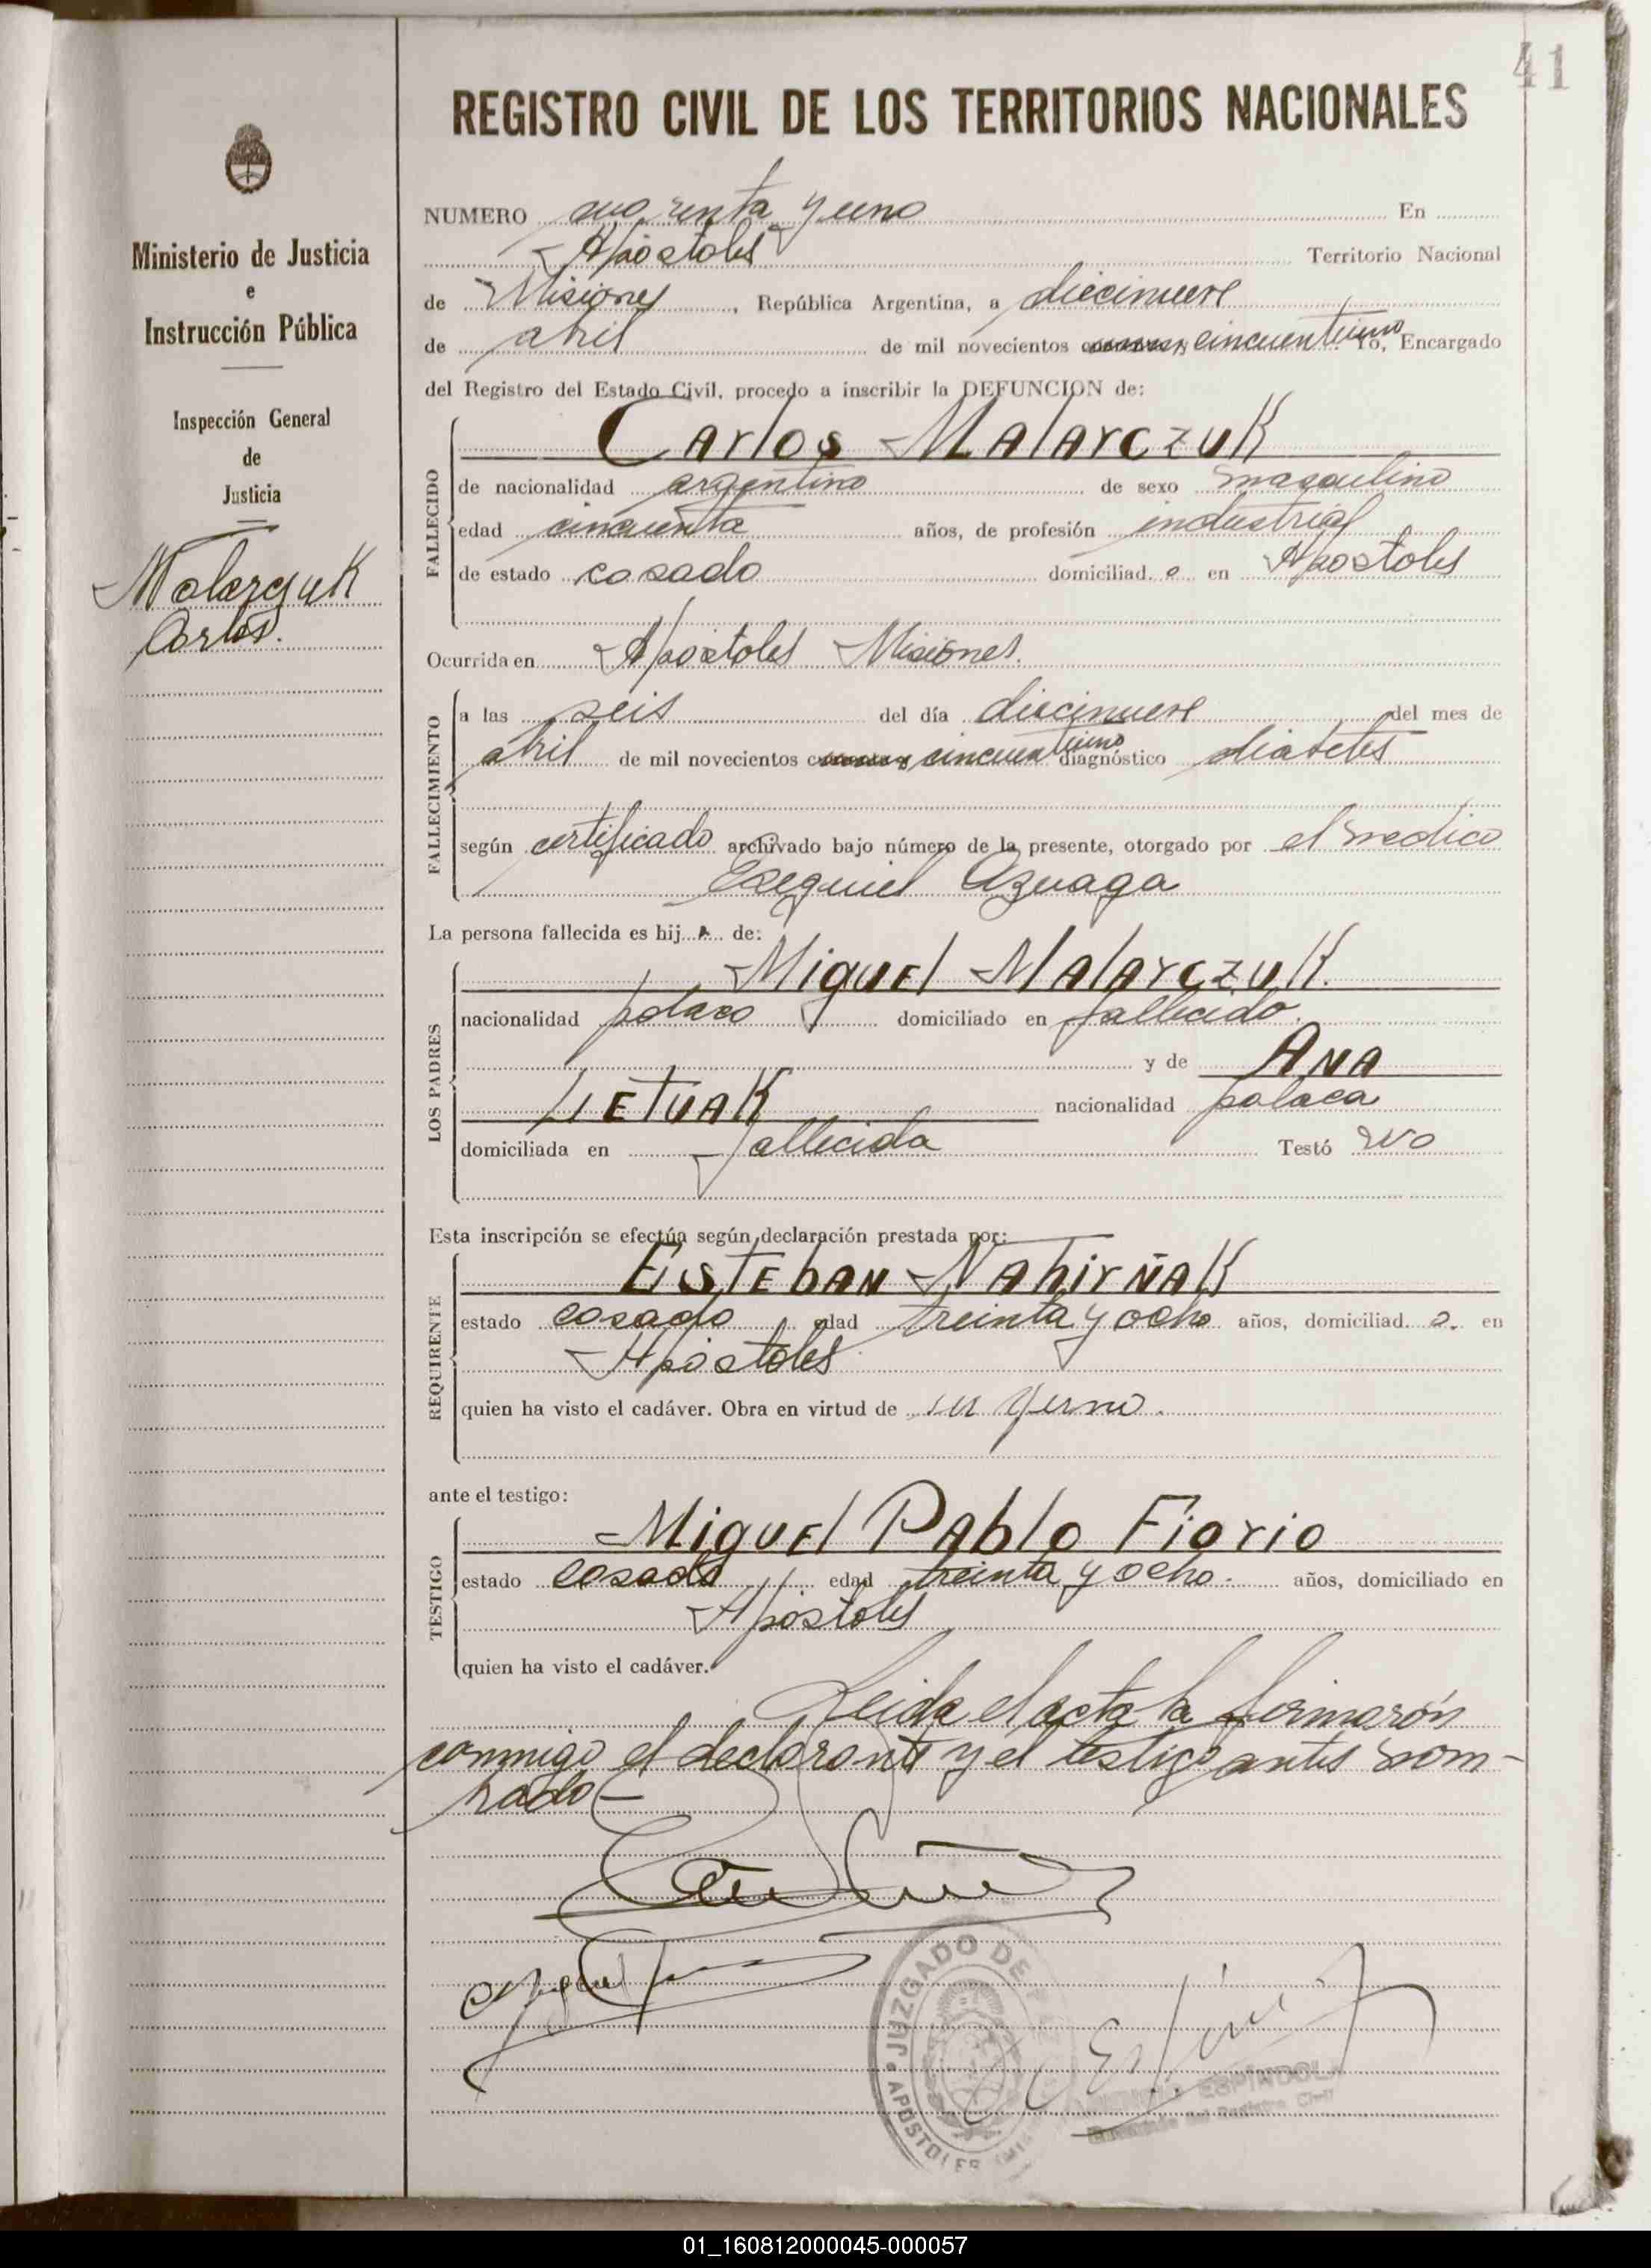 41
REGISTRO CIVIL DE LOS TERRITORIOS NACIONALES
Ministerio de Justicia
e
Instrucción Pública
Inspección General
de
Justicia
Malarczuk
Carlos.
NUMERO cuarenta y uno En
Apostoles Territorio Nacional
de Misiones, República Argentina, a diecinueve
de abril de mil novecientos cincuentiuno Yo, Encargado
del Registro del Estado Civil, procedo a inscribir la DEFUNCION de:
FALLECIDO
Carlos Malarczuk
de nacionalidad argentino de sexo masculino
edad cincuenta años, de profesión industrial
de estado casado domiciliad o en Apostoles
Ocurrida en Apostoles Misiones.
FALLECIMIENTO
a las seis del día diecinueve del mes de
abril de mil novecientos cincuentiuno diagnóstico diabetes
según certificado archivado bajo número de la presente, otorgado por el medico
Ezequiel Azuaga
La persona fallecida es hij o de:
LOS PADRES
Miguel Malarczuk.
nacionalidad polaco domiciliado en fallecido.
y de Ana
nacionalidad polaca
domiciliada en fallecida Testó no
Esta inscripción se efectúa según declaración prestada por:
REQUIRENTE
Esteban Nahirñak
estado casado edad treinta y ocho años, domiciliad o. en
Apostoles
quien ha visto el cadáver. Obra en virtud de su yerno.
ante el testigo:
TESTIGO
Miguel Pablo Fiorio
estado casado edad treinta y ocho. años, domiciliado en
Apostoles
quien ha visto el cadáver.
Leida el acta la firmarón
conmigo el declarante y el testigo antes nom-
brado
JUZGADO DE
APOSTOLES
ESPINDOLA
01_160812000045-000057